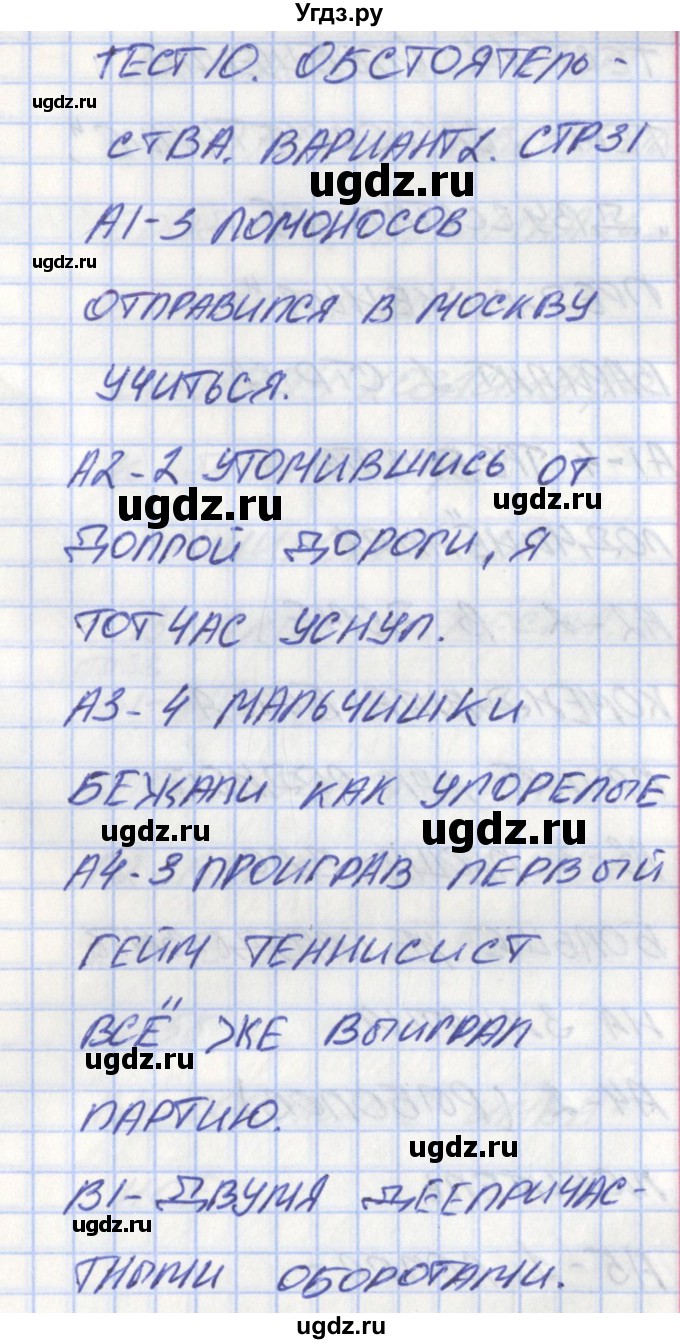 Угдз.ру
ТЕСТ 10. ОБСТОЯТЕЛЬ-
ugdz.ru
СТВА. ВАРИАНТ 2. СТР 31
ugdz.ru
А1-3 ЛОМОНОСОВ
ugdz.ru
ОТПРАВИЛСЯ В МОСКВУ
УЧИТЬСЯ.
А2-2 УТОМИВШИСЬ ОТ
ugdz.ru ugdz.ru
ДОЛГОЙ ДОРОГИ, Я
ТОТ ЧАС УСНУЛ.
А3-4 МАЛЬЧИШКИ
БЕЖАЛИ КАК УГОРЕЛЫЕ
ugdz.ru ugdz.ru
А4-3 ПРОИГРАВ ПЕРВЫЙ
ГЕЙМ ТЕННИСИСТ
ВСЁ ЖЕ ВЫИГРАЛ
ugdz.ru
ПАРТИЮ.
ugdz.ru
В1- ДВУМЯ ДЕЕПРИЧАС-
ugdz.ru
ТНЫМИ ОБОРОТАМИ.
ugdz.ru